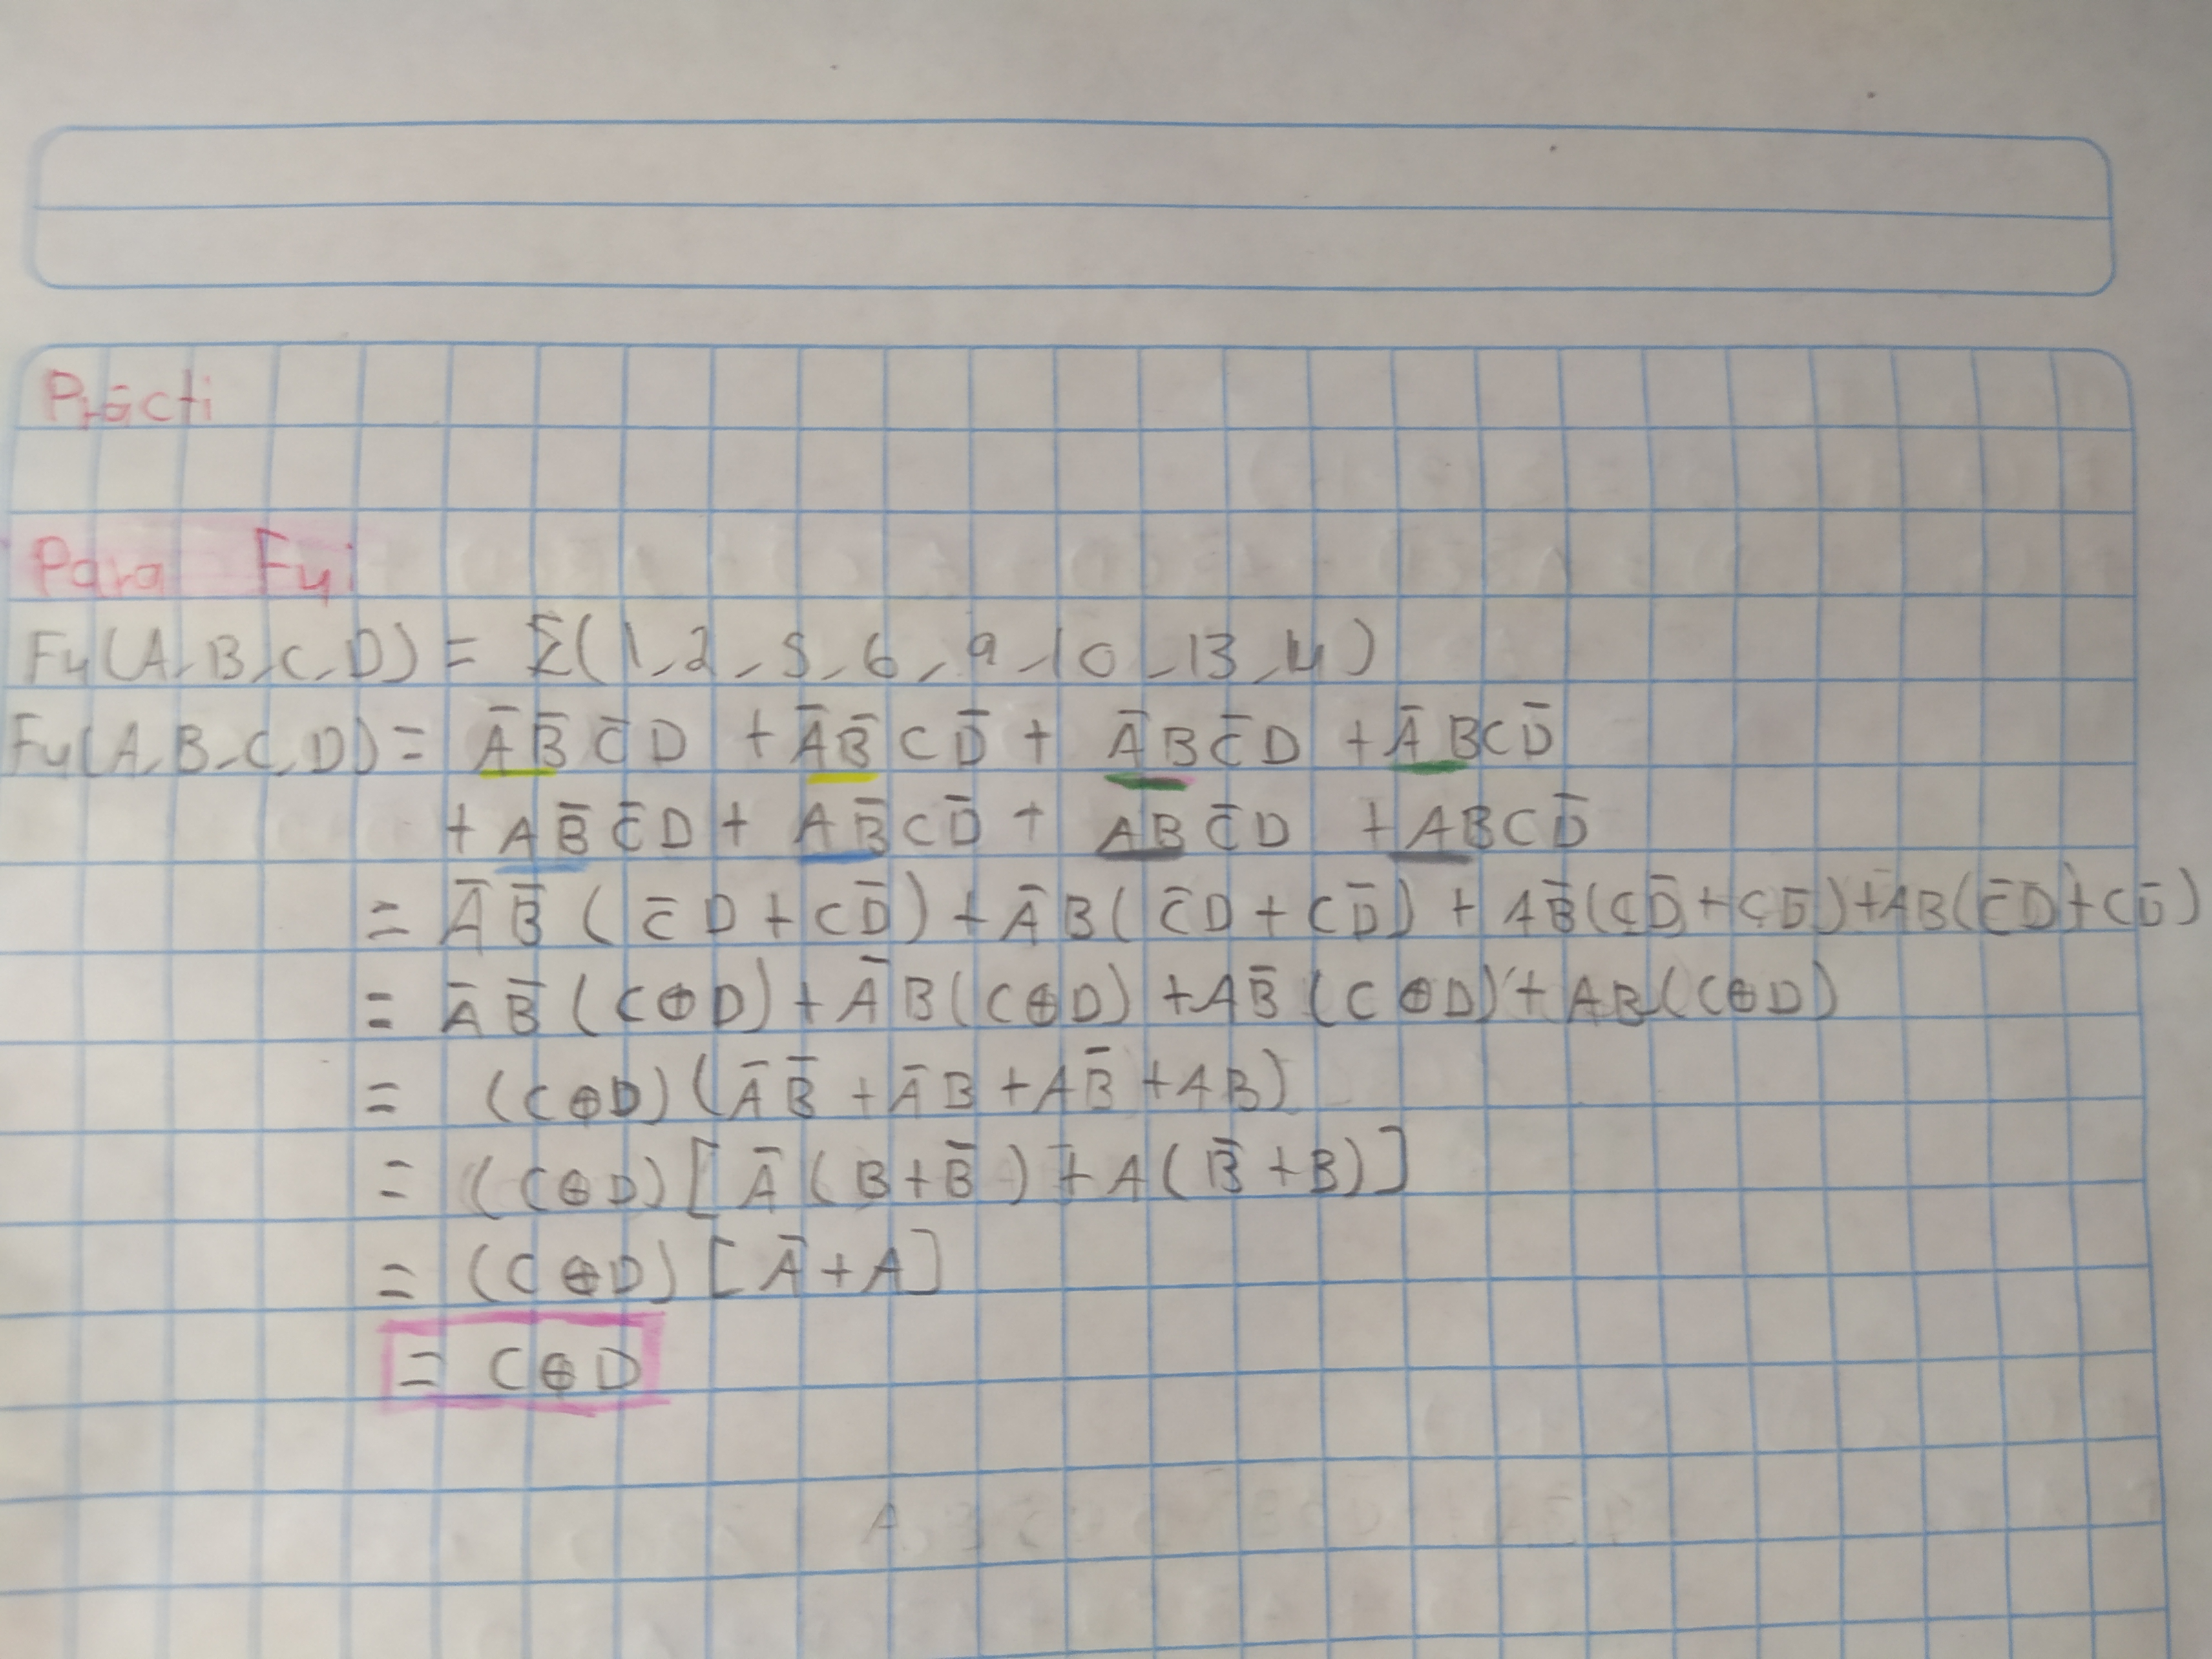 Prácti
Para F4:
F4(A,B,C,D) = Σ(1,2,5,6,9,10,13,14)
F4(A,B,C,D) = A̅ B̅ C̅ D + A̅ B̅ C D̅ + A̅ B C̅ D + A̅ B C D̅
+ A B̅ C̅ D + A B̅ C D̅ + A B C̅ D + A B C D̅
= A̅ B̅ ( C̅ D + C D̅ ) + A̅ B ( C̅ D + C D̅ ) + A B̅ ( C D̅ + C D̅ ) + A B ( C̅ D + C D̅ )
= A̅ B̅ (C⊕D) + A̅ B (C⊕D) + A B̅ (C⊕D) + AB (C⊕D)
= (C⊕D)(A̅ B̅ + A̅ B + A B̅ + AB)
= (C⊕D)[A̅ (B + B̅) + A (B̅ + B)]
= (C⊕D)[A̅ + A]
= C⊕D